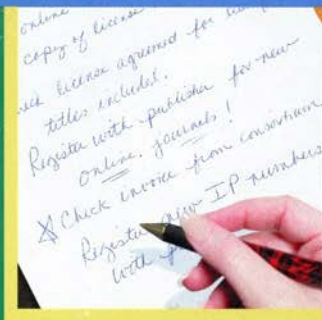 online
copy of license
license agreement for
titles included.
Register with publisher for new
online journals!
Check invoice from consortium
Register new IP numbers
with